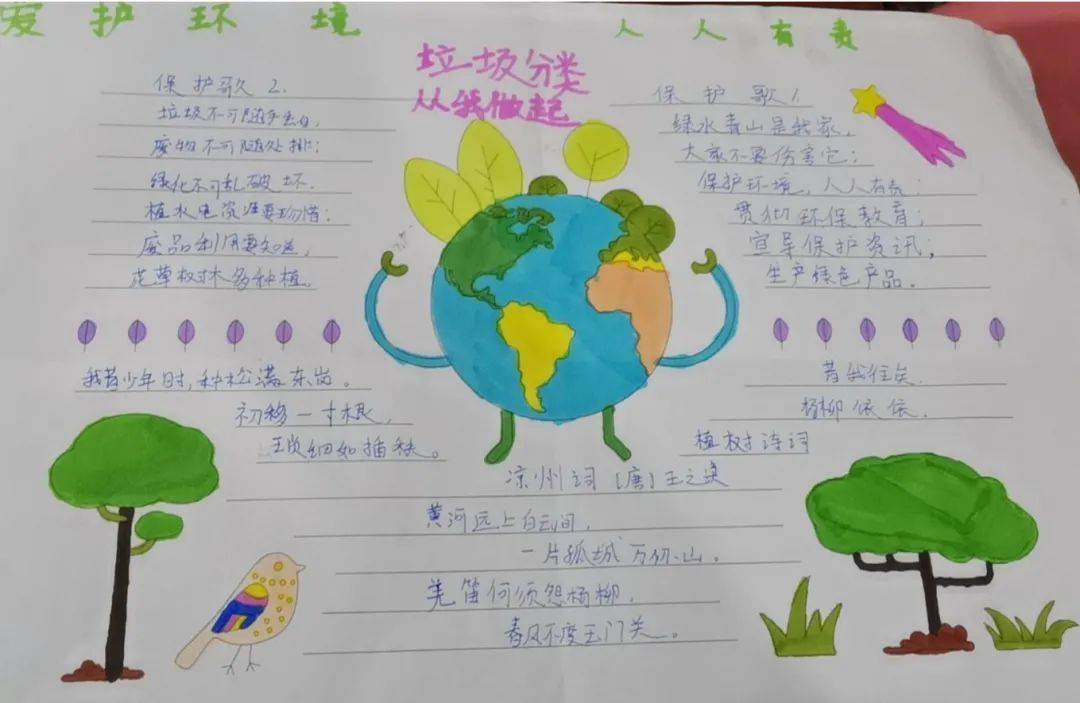 爱护环境 人人有责
垃圾分类
从我做起
保护歌2.
垃圾不可随手丢,
废物不可随处排;
绿化不可乱破坏.
植水电资源要珍惜;
废品利用要知道,
花草树木多种植。
保护歌1.
绿水青山是我家,
大家不要伤害它;
保护环境,人人有责;
贯彻环保教育;
宣导保护资讯;
生产绿色产品。
我昔少年时,种松满东岗。
初移一寸根,
琐细如插秧。
昔我往矣.
杨柳依依.
植树诗词
凉州词 [唐] 王之涣
黄河远上白云间,
一片孤城万仞山。
羌笛何须怨杨柳.
春风不度玉门关。